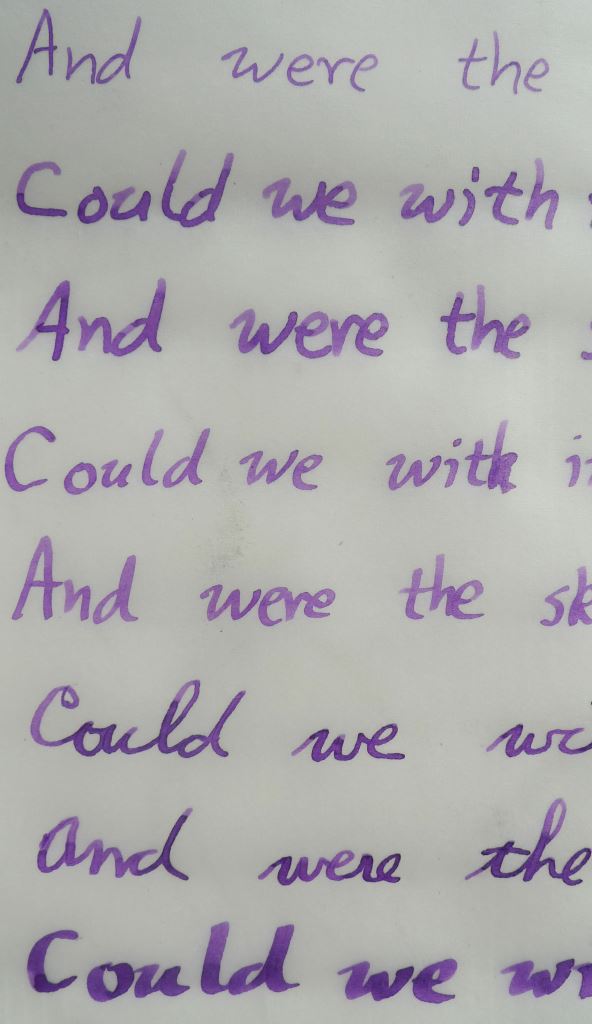 And were the
Could we with
And were the
Could we with
And were the sk
Could we
And were the
Could we